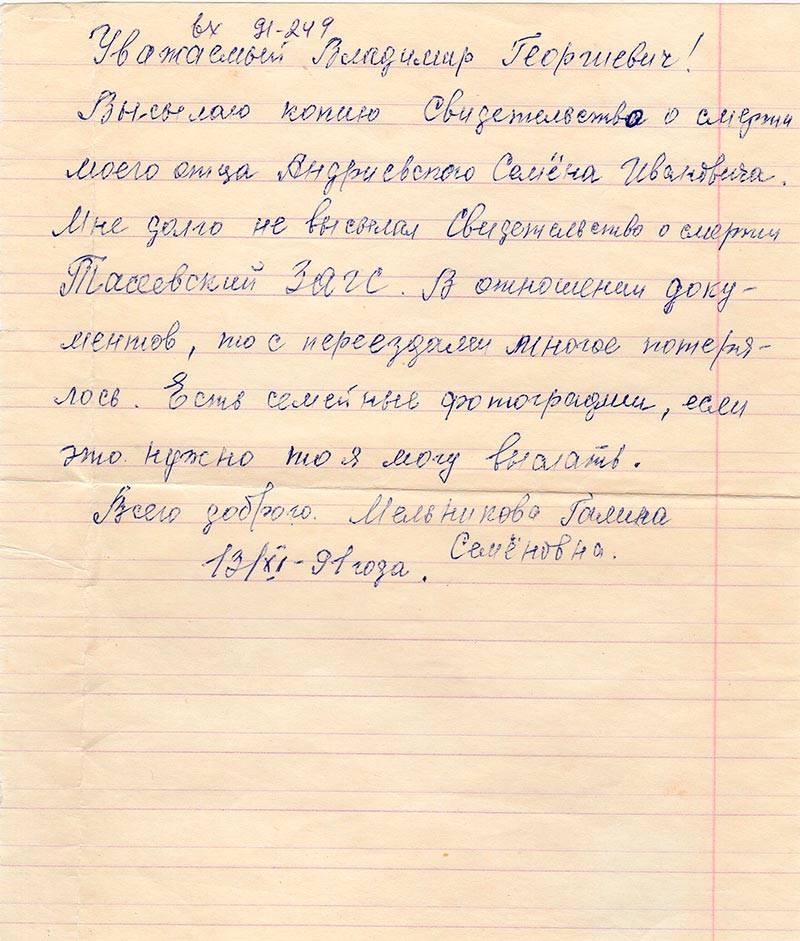 вх 91-249
Уважаемый Владимир Георгиевич!
Высылаю копию Свидетельство о смерти
моего отца Андриевского Семёна Ивановича.
Мне долго не высылал Свидетельство о смерти
Тасеевский ЗАГС. В отношении доку-
ментов, то с переездами многое потеря-
лось. Есть семейные фотографии, если
это нужно то я могу выслать.
Всего доброго. Мельникова Галина
Семёновна.
13/XI-91 года.